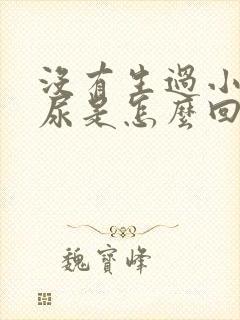 沒有生過小
尿是怎麼回
魏寶峰